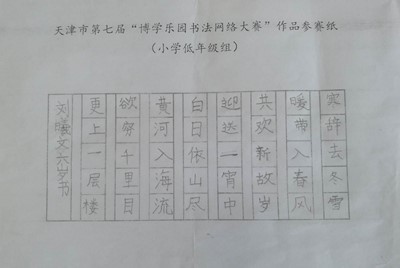 天津市第七届“博学乐园书法网络大赛”作品参赛纸
（小学低年级组）
寒辞去冬雪
暖带入春风
共欢新故岁
迎送一宵中
白日依山尽
黄河入海流
欲穷千里目
更上一层楼
刘曦文六岁书